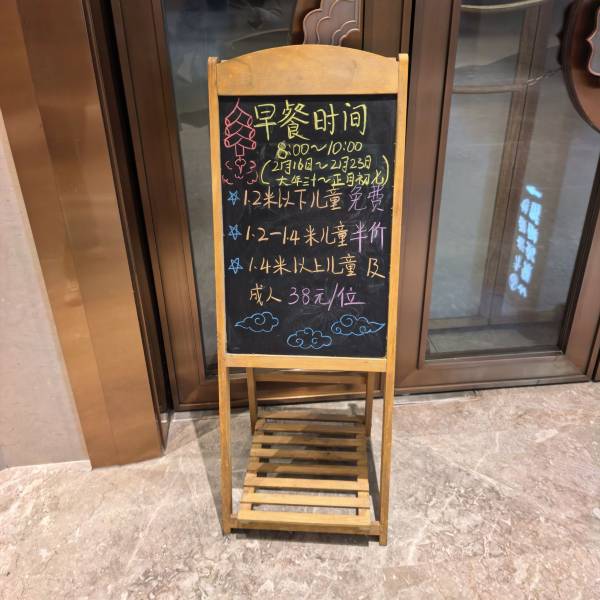 早餐时间
8:00～10:00
(2月16日～2月23日
大年三十～正月初七)
1.2米以下儿童 免费
1.2—1.4米儿童半价
1.4米以上儿童及
成人 38元/位